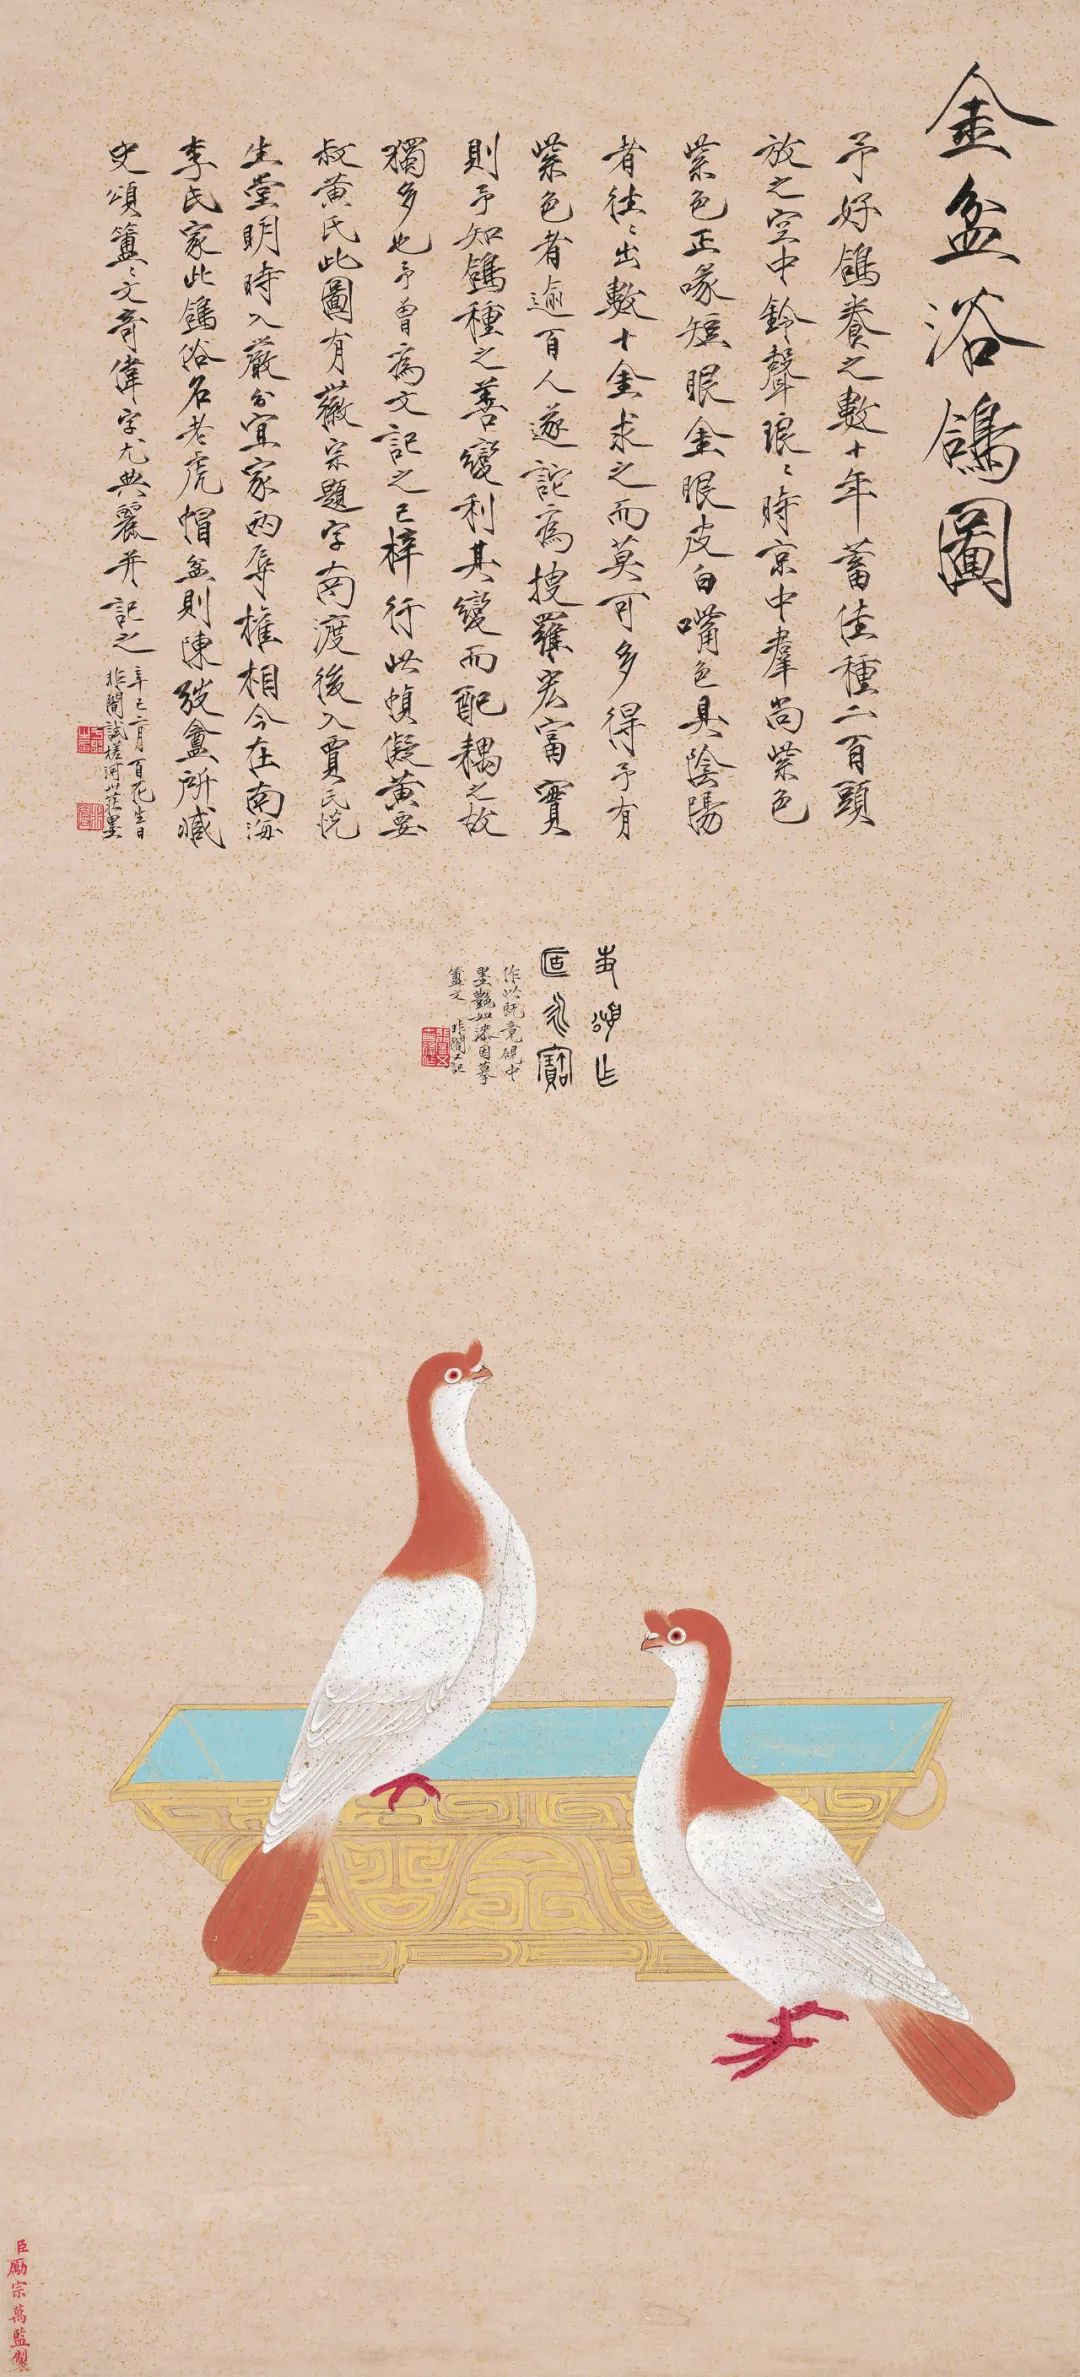 金盆浴鴿圖
予好鴿養之數十年蓄佳種二百頭
放之空中鈴聲琅〻時京中羣尚紫色
紫色正喙短眼金眼皮白嘴色具陰陽
者往〻出數十金求之而莫可多得予有
紫色者逾百人遂詫為搜羅宏富實
則予知鴿種之善變利其變而配耦之故
獨多也予曾為文記之已梓行此幀儗黃要
叔黃氏此圖有徽宗題字南渡後入賈氏悅
生堂明時入嚴分宜家兩辱權相今在南海
李氏家此鴿俗名老虎帽盆則陳弢盦所臧
史頌簠〻文奇偉字尤典麗并記之
辛巳二月百花生日
非闇試槎河山莊墨
史頌作
簠永寶
作此既竟硯中
墨艷如漆因摹
簠文 非闇又記
臣勵宗萬監製